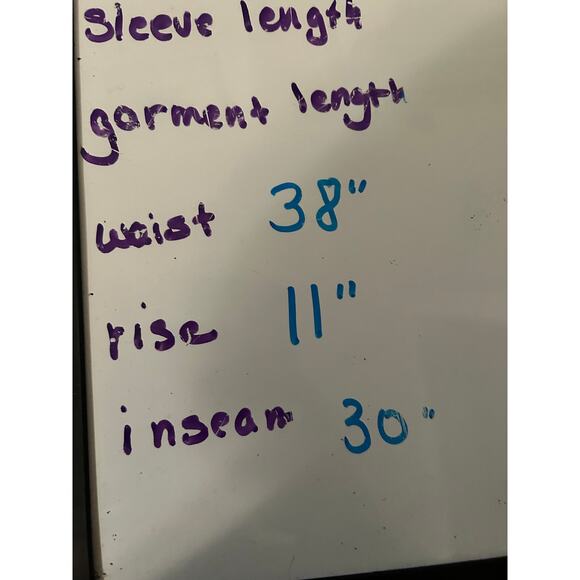 sleeve length
garment length
waist 38"
rise 11"
inseam 30"